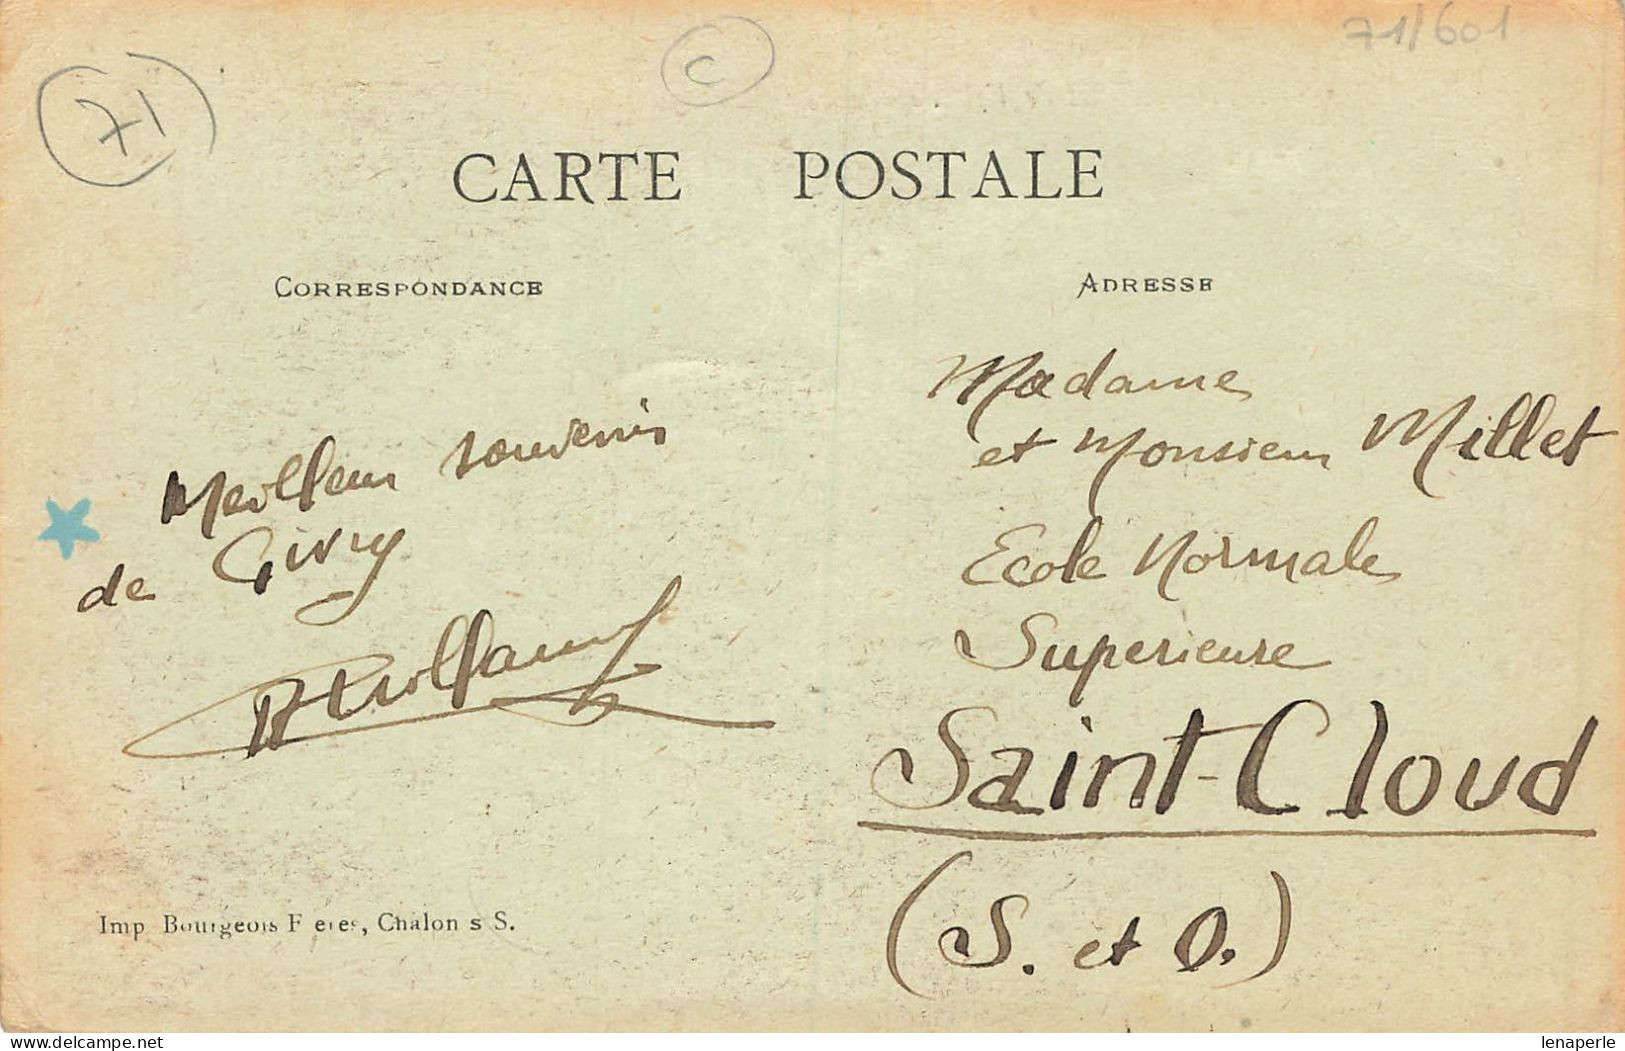 71
C
71/601
CARTE POSTALE
CORRESPONDANCE
ADRESSE
Meilleur souvenir
de Givry
Madame
et Monsieur Millet
Ecole Normale
Superieure
Saint-Cloud
(S. et O.)
Imp Bourgeois Freres, Chalon s S.
www.delcampe.net
lenaperle